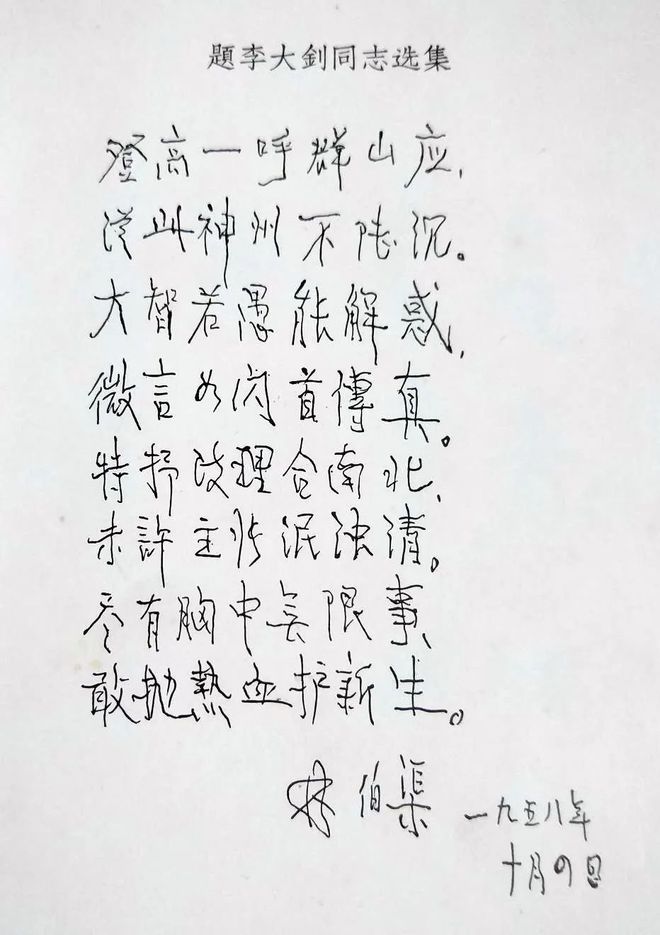 題李大釗同志选集
登高一呼群山应,
從此神州不陆沉。
大智若愚能解惑,
微言如闪首傳真。
特抒政理合南北,
未許主张泯浊清。
尽有胸中无限事,
敢抛熱血护新生。
林伯渠
一九五八年
十月四日